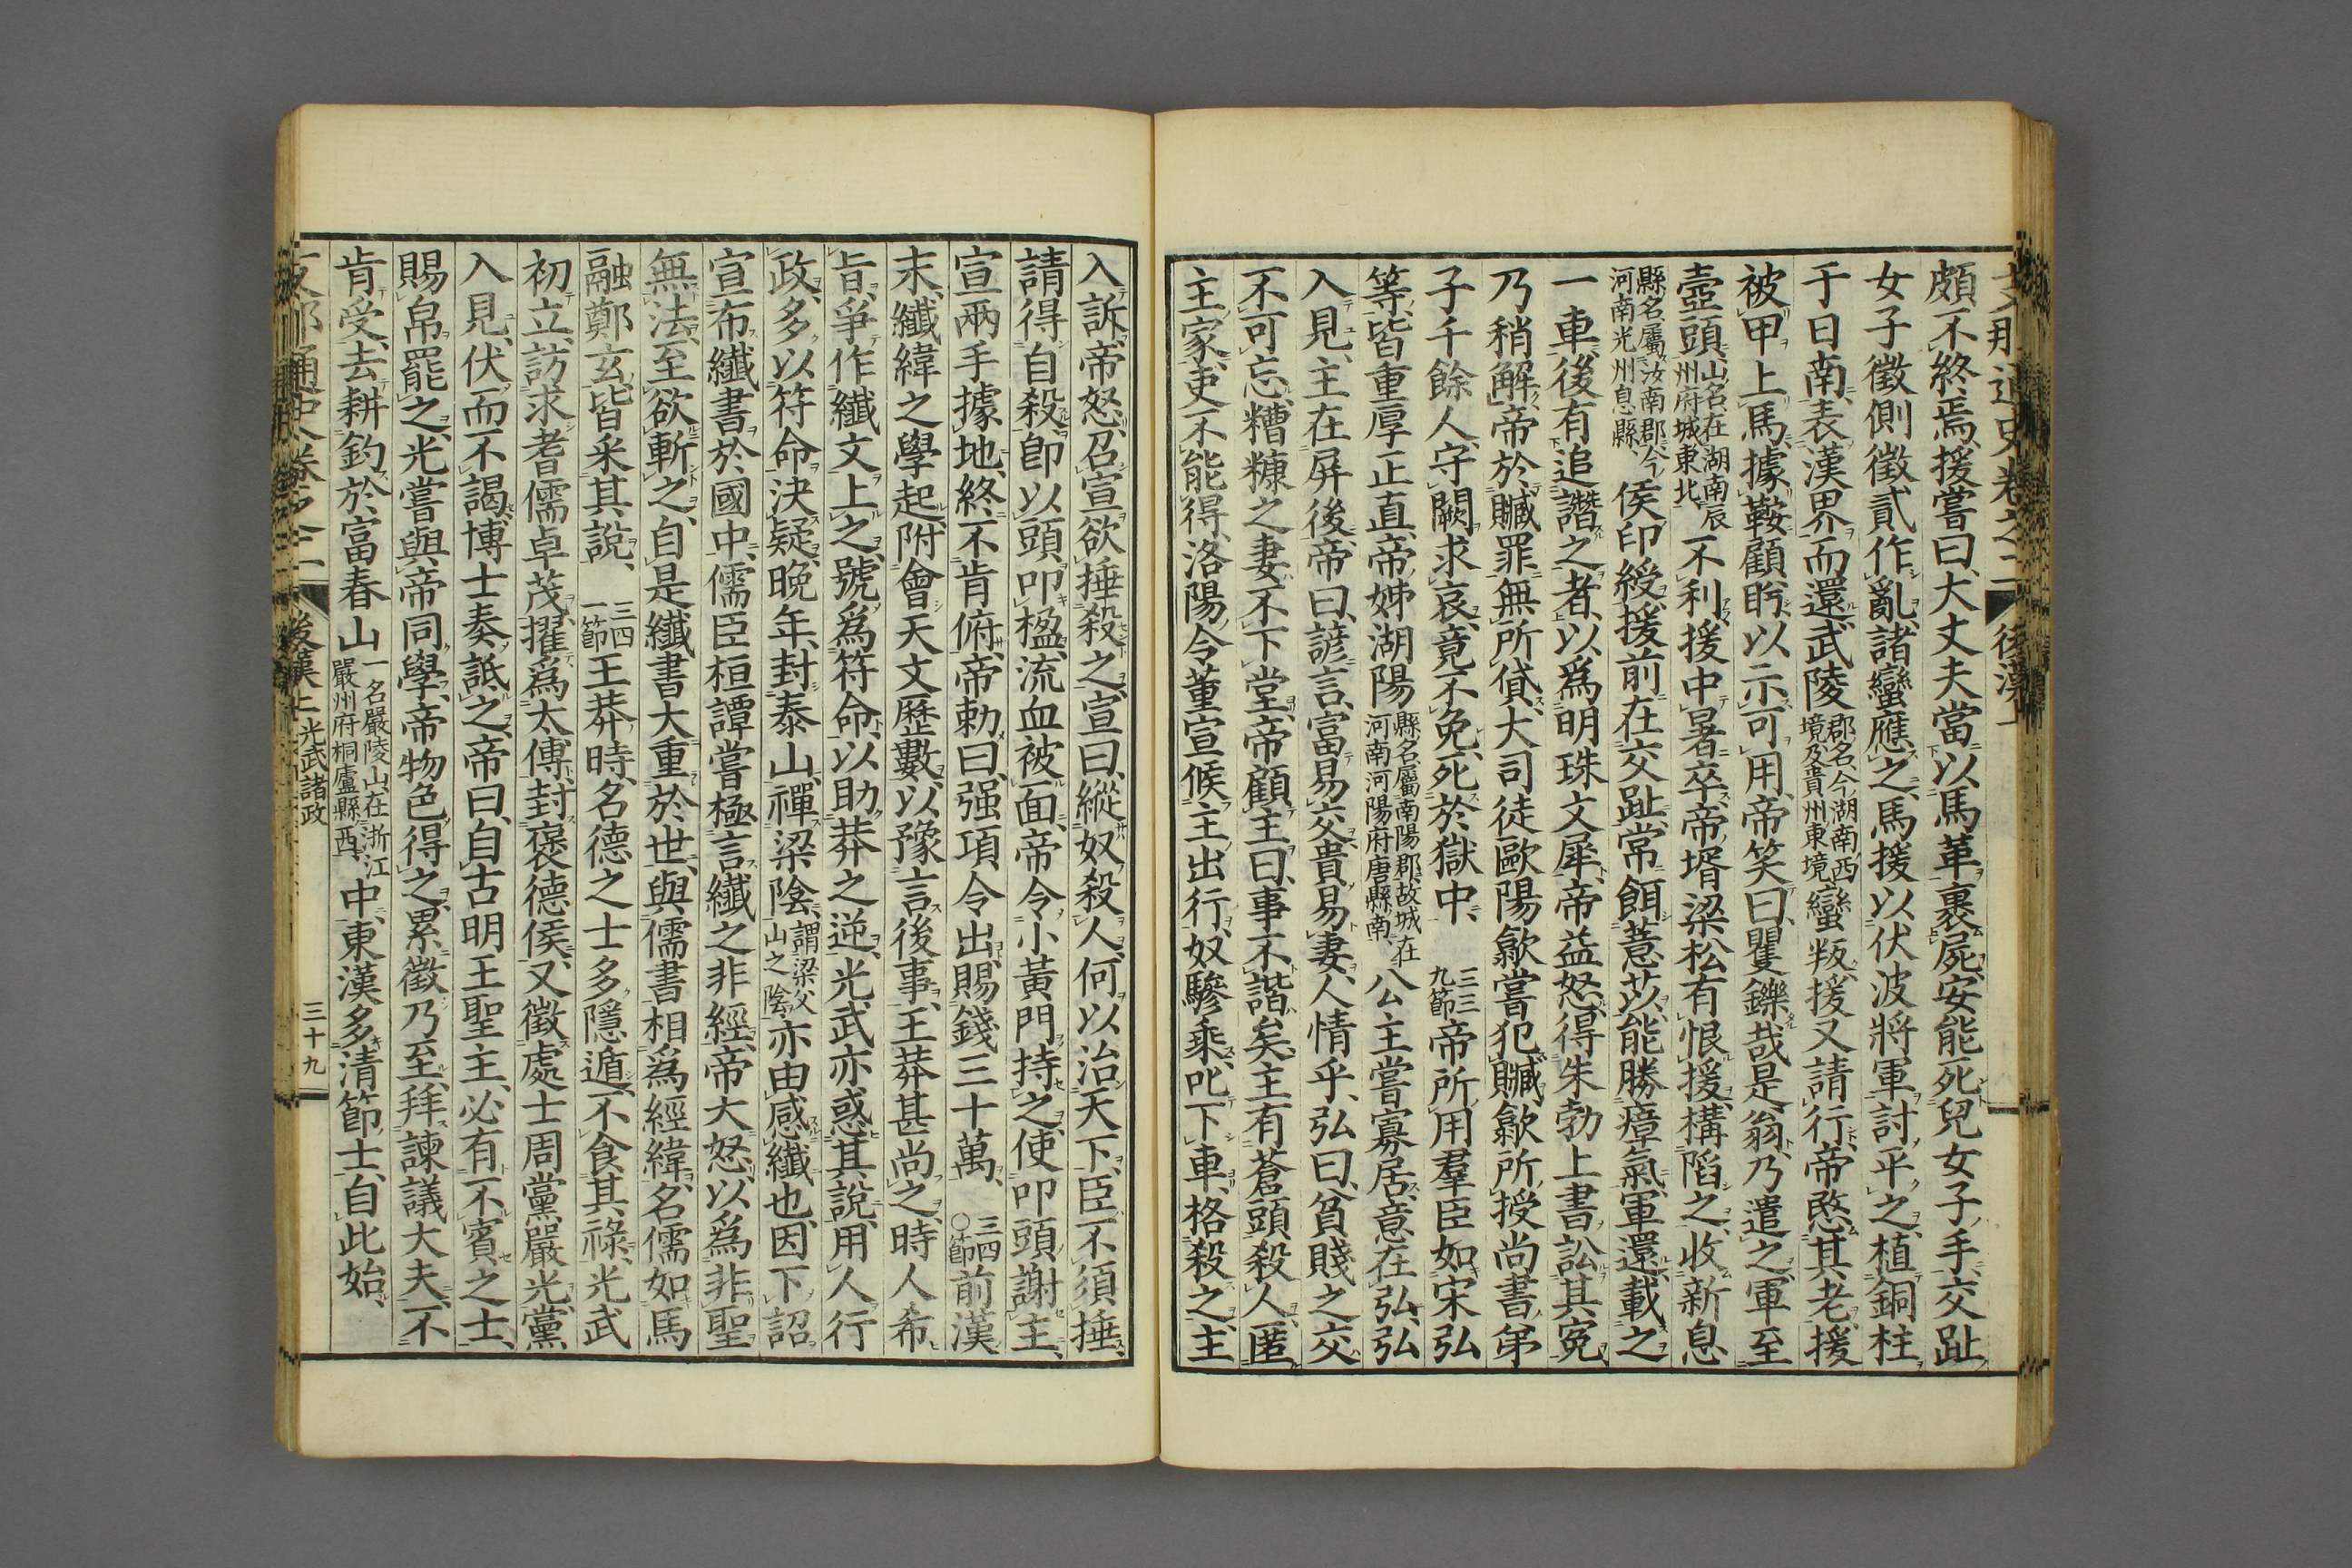 支那通史卷之二 後漢上
頗不終焉、援嘗曰、大丈夫當以馬革裹屍、安能死兒女子手、交趾
女子徵側徵貳作亂、諸蠻應之、馬援以伏波將軍討平之、植銅柱
于日南、表漢界而還、武陵郡名、今湖南西境及貴州東境蠻叛、援又請行、帝愍其老、援
被甲上馬、據鞍顧眄、以示可用、帝笑曰、矍鑠哉是翁、乃遣之、軍至
壺頭、山名、在湖南辰州府城東北不利、援中暑卒、帝壻梁松有恨援、構陷之、收新息
縣名、屬汝南郡、今河南光州息縣、侯印綬、援前在交趾、常餌薏苡、能勝瘴氣、軍還、載之
一車、後有追譖之者、以爲明珠文犀、帝益怒、得朱勃上書訟其冤、
乃稍解、帝於贓罪無所貸、大司徒歐陽歙嘗犯贓、歙所授尚書弟
子千餘人、守闕求哀、竟不免、死於獄中、三三九節帝所用羣臣如宋弘
等、皆重厚正直、帝姊湖陽縣名、屬南陽郡、故城在河南河陽府唐縣南、公主嘗寡居、意在弘、弘
入見、主在屏後、帝曰、諺言、富易交、貴易妻、人情乎、弘曰、貧賤之交
不可忘、糟糠之妻、不下堂、帝顧主曰、事不諧矣、主有蒼頭殺人、匿
主家、吏不能得、洛陽令董宣候主出行、奴驂乘、叱下車、格殺之、主
入訴、帝怒、召宣欲捶殺之、宣曰、縱奴殺人、何以治天下、臣不須捶、
請得自殺、卽以頭叩楹、流血被面、帝令小黃門持之、使叩頭謝主、
宣兩手據地、終不肯俯、帝勅曰、强項令出、賜錢三十萬、三四〇節前漢
末、讖緯之學起、附會天文歷數、以豫言後事、王莽甚尚之、時人希
旨、爭作讖文上之、號爲符命、以助莽之逆、光武亦惑其說、用人行
政、多以符命決疑、晩年、封泰山、禪梁陰、謂梁父山之陰、亦由感讖也、因下詔
宣布讖書於國中、儒臣桓譚嘗極言讖之非經、帝大怒、以爲非聖
無法、至欲斬之、自是讖書大重於世、與儒書相爲經緯、名儒如馬
融鄭玄、皆采其說、三四一節王莽時、名德之士多隱遁、不食其祿、光武
初立、訪求耆儒卓茂、擢爲太傅、封褒德侯、又徵處士周黨嚴光、黨
入見、伏而不謁、博士奏詆之、帝曰、自古明王聖主、必有不賓之士、
賜帛罷之、光嘗與帝同學、帝物色得之、累徵乃至、拜諫議大夫、不
肯受、去耕釣於富春山一名嚴陵山、在浙江嚴州府桐廬縣西、中、東漢多清節士、自此始、
支那通史卷之二 後漢上 光武諸政 三十九